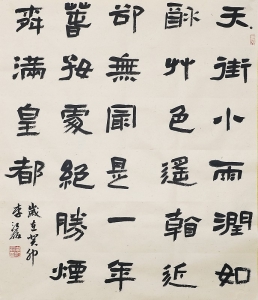 天街小雨潤如
酥艸色遙看近
卻無最是一年
春好處絕勝煙
桺滿皇都
歲在癸卯
李